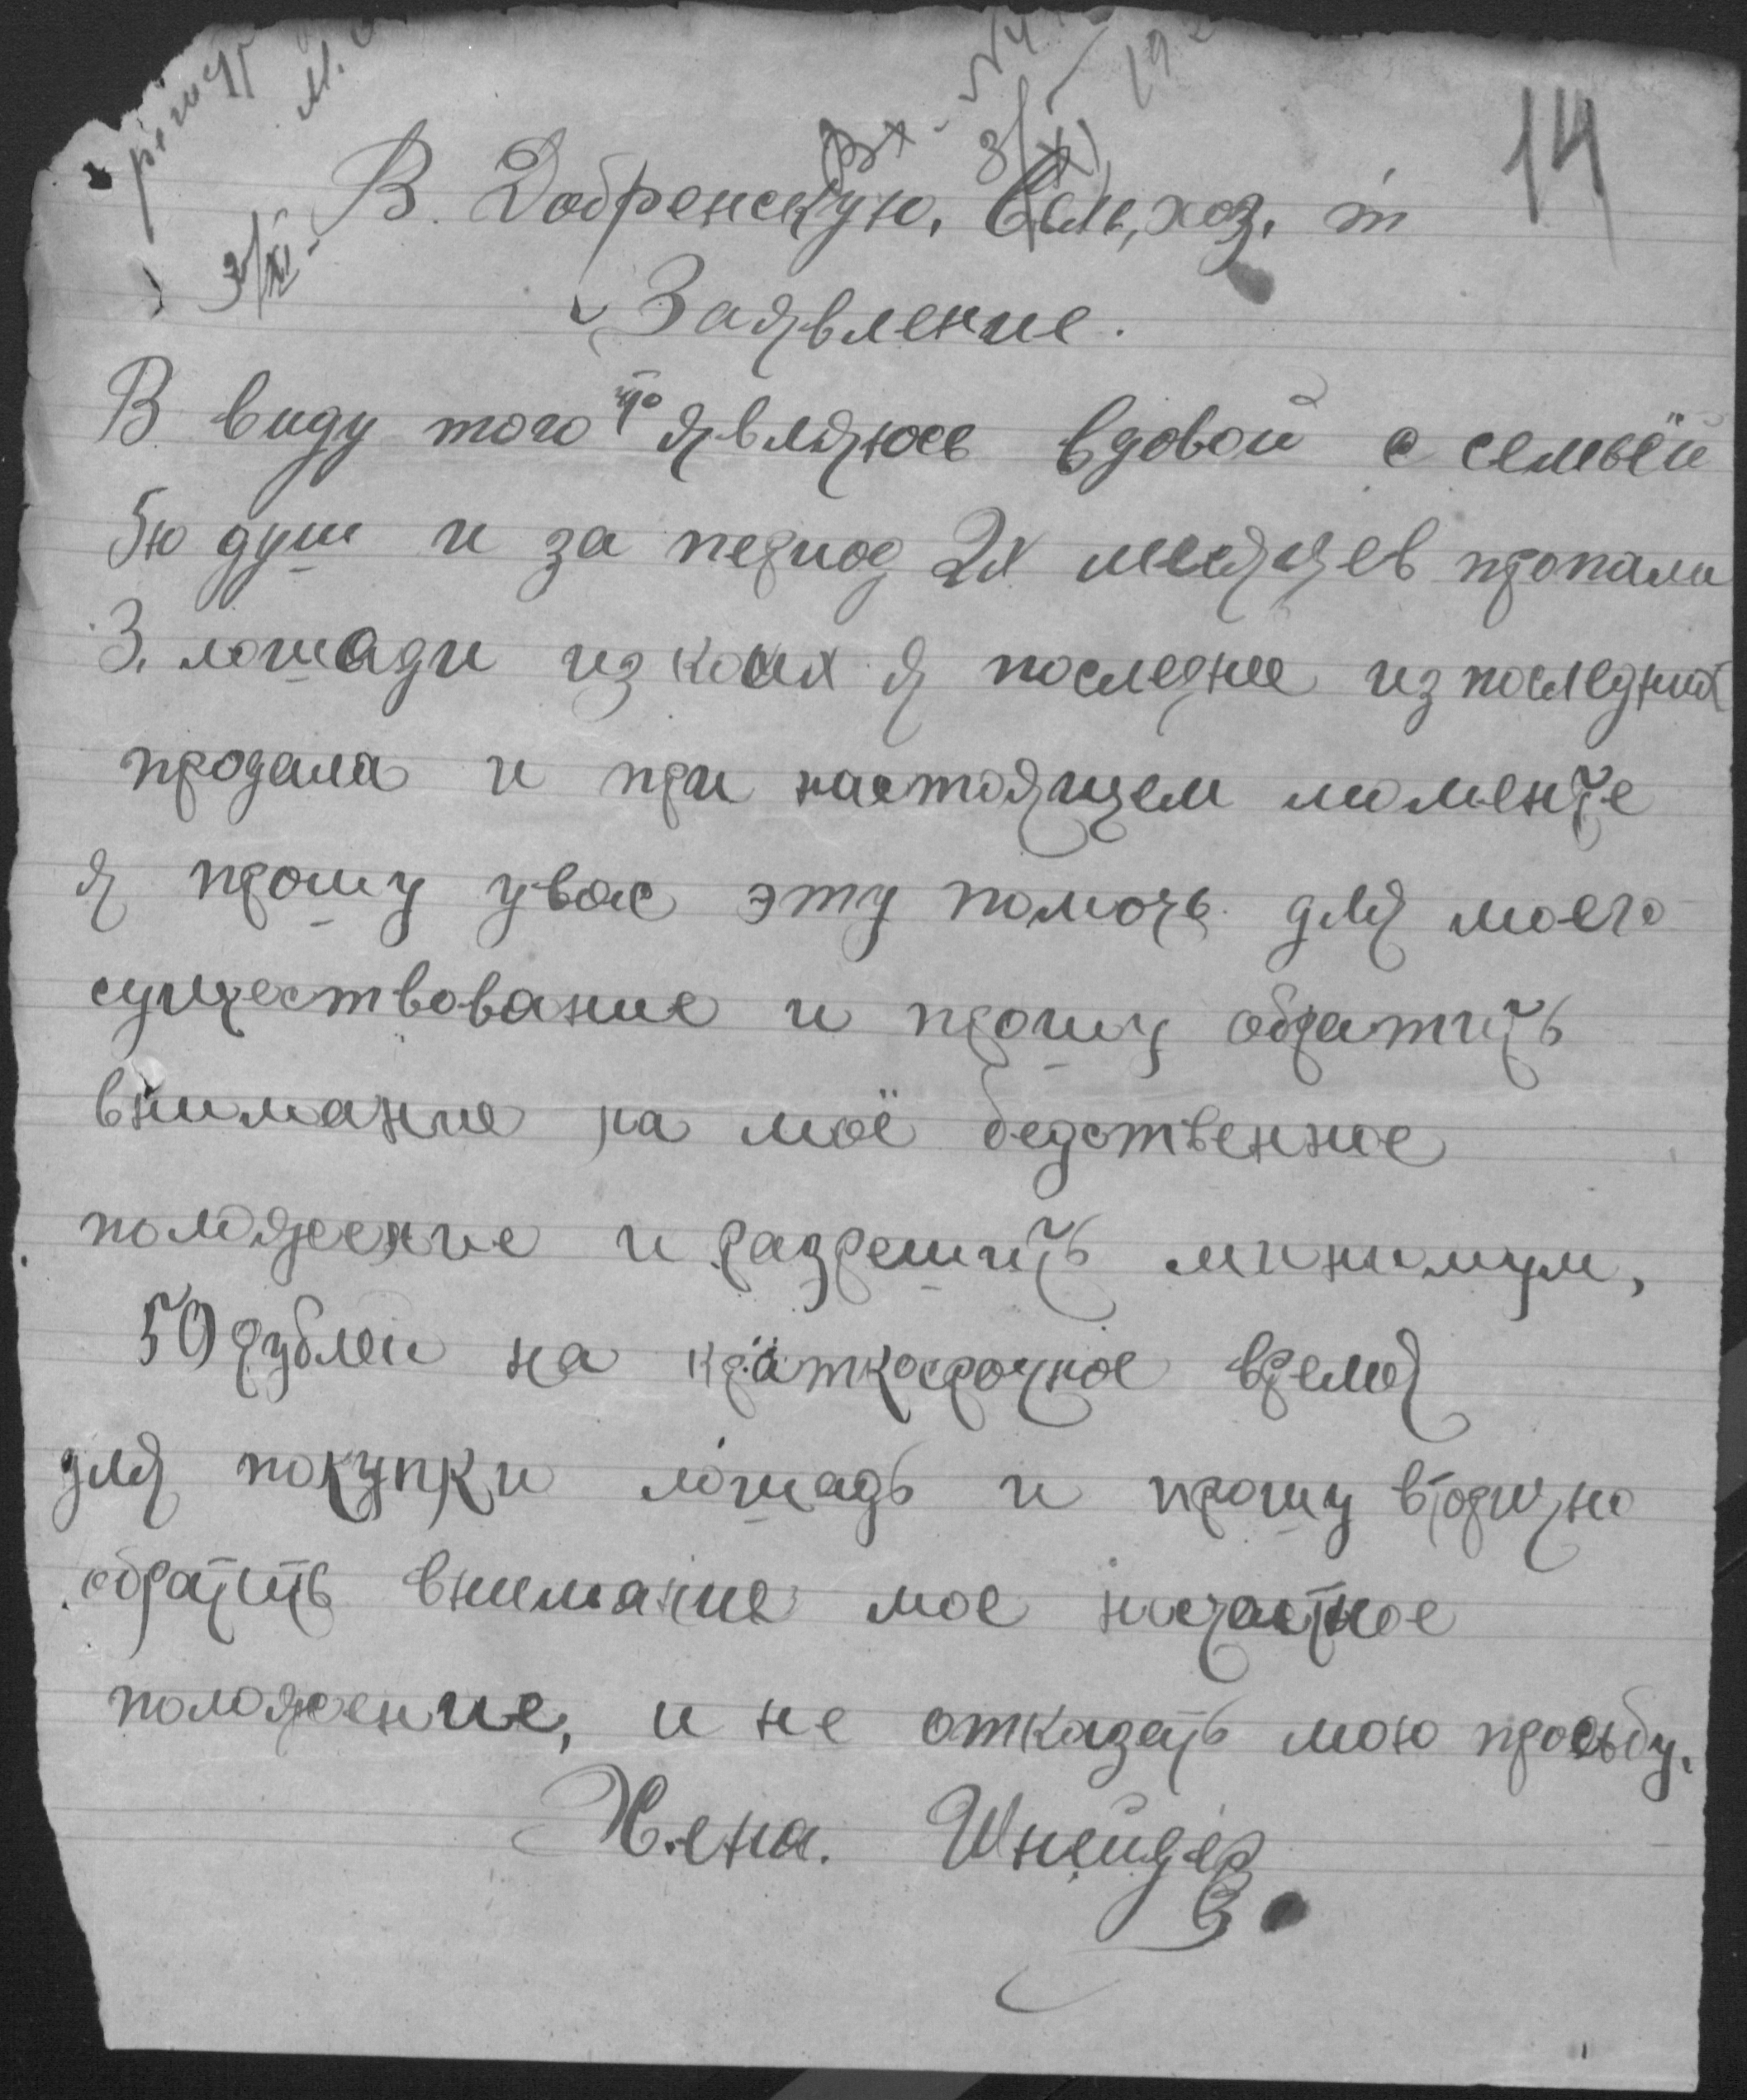 14
В. Добренскую, Сель, хоз. т
3/XI
Заявление.
В виду того что являюсь вдовой с семьёй
5ю душ и за период 2х месяцев пропали
3. лошади из коих я последнее из последних
продала и при настоящем моменте
я прошу увас эту помочь для моего
существование и прошу обратить
внимание на моё бедственное
положение и разрешить минимум,
50 рублей на краткосрочное время
для покупки лошадь и прошу вторично
обратить внимание мое нисчастное
положение, и не отказать мою просьбу.
Хена. Шнейдер